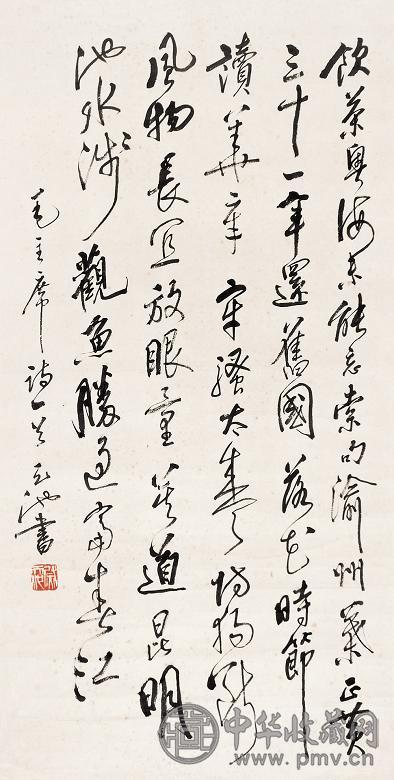 飲茶粵海未能忘索句渝州葉正黃
三十一年還舊國落花時節
讀華章牢騷太盛防腸斷
風物長宜放眼量莫道昆明
池水淺觀魚勝過富春江
毛主席詩一首 池書
中华收藏网
www.pmv.cn